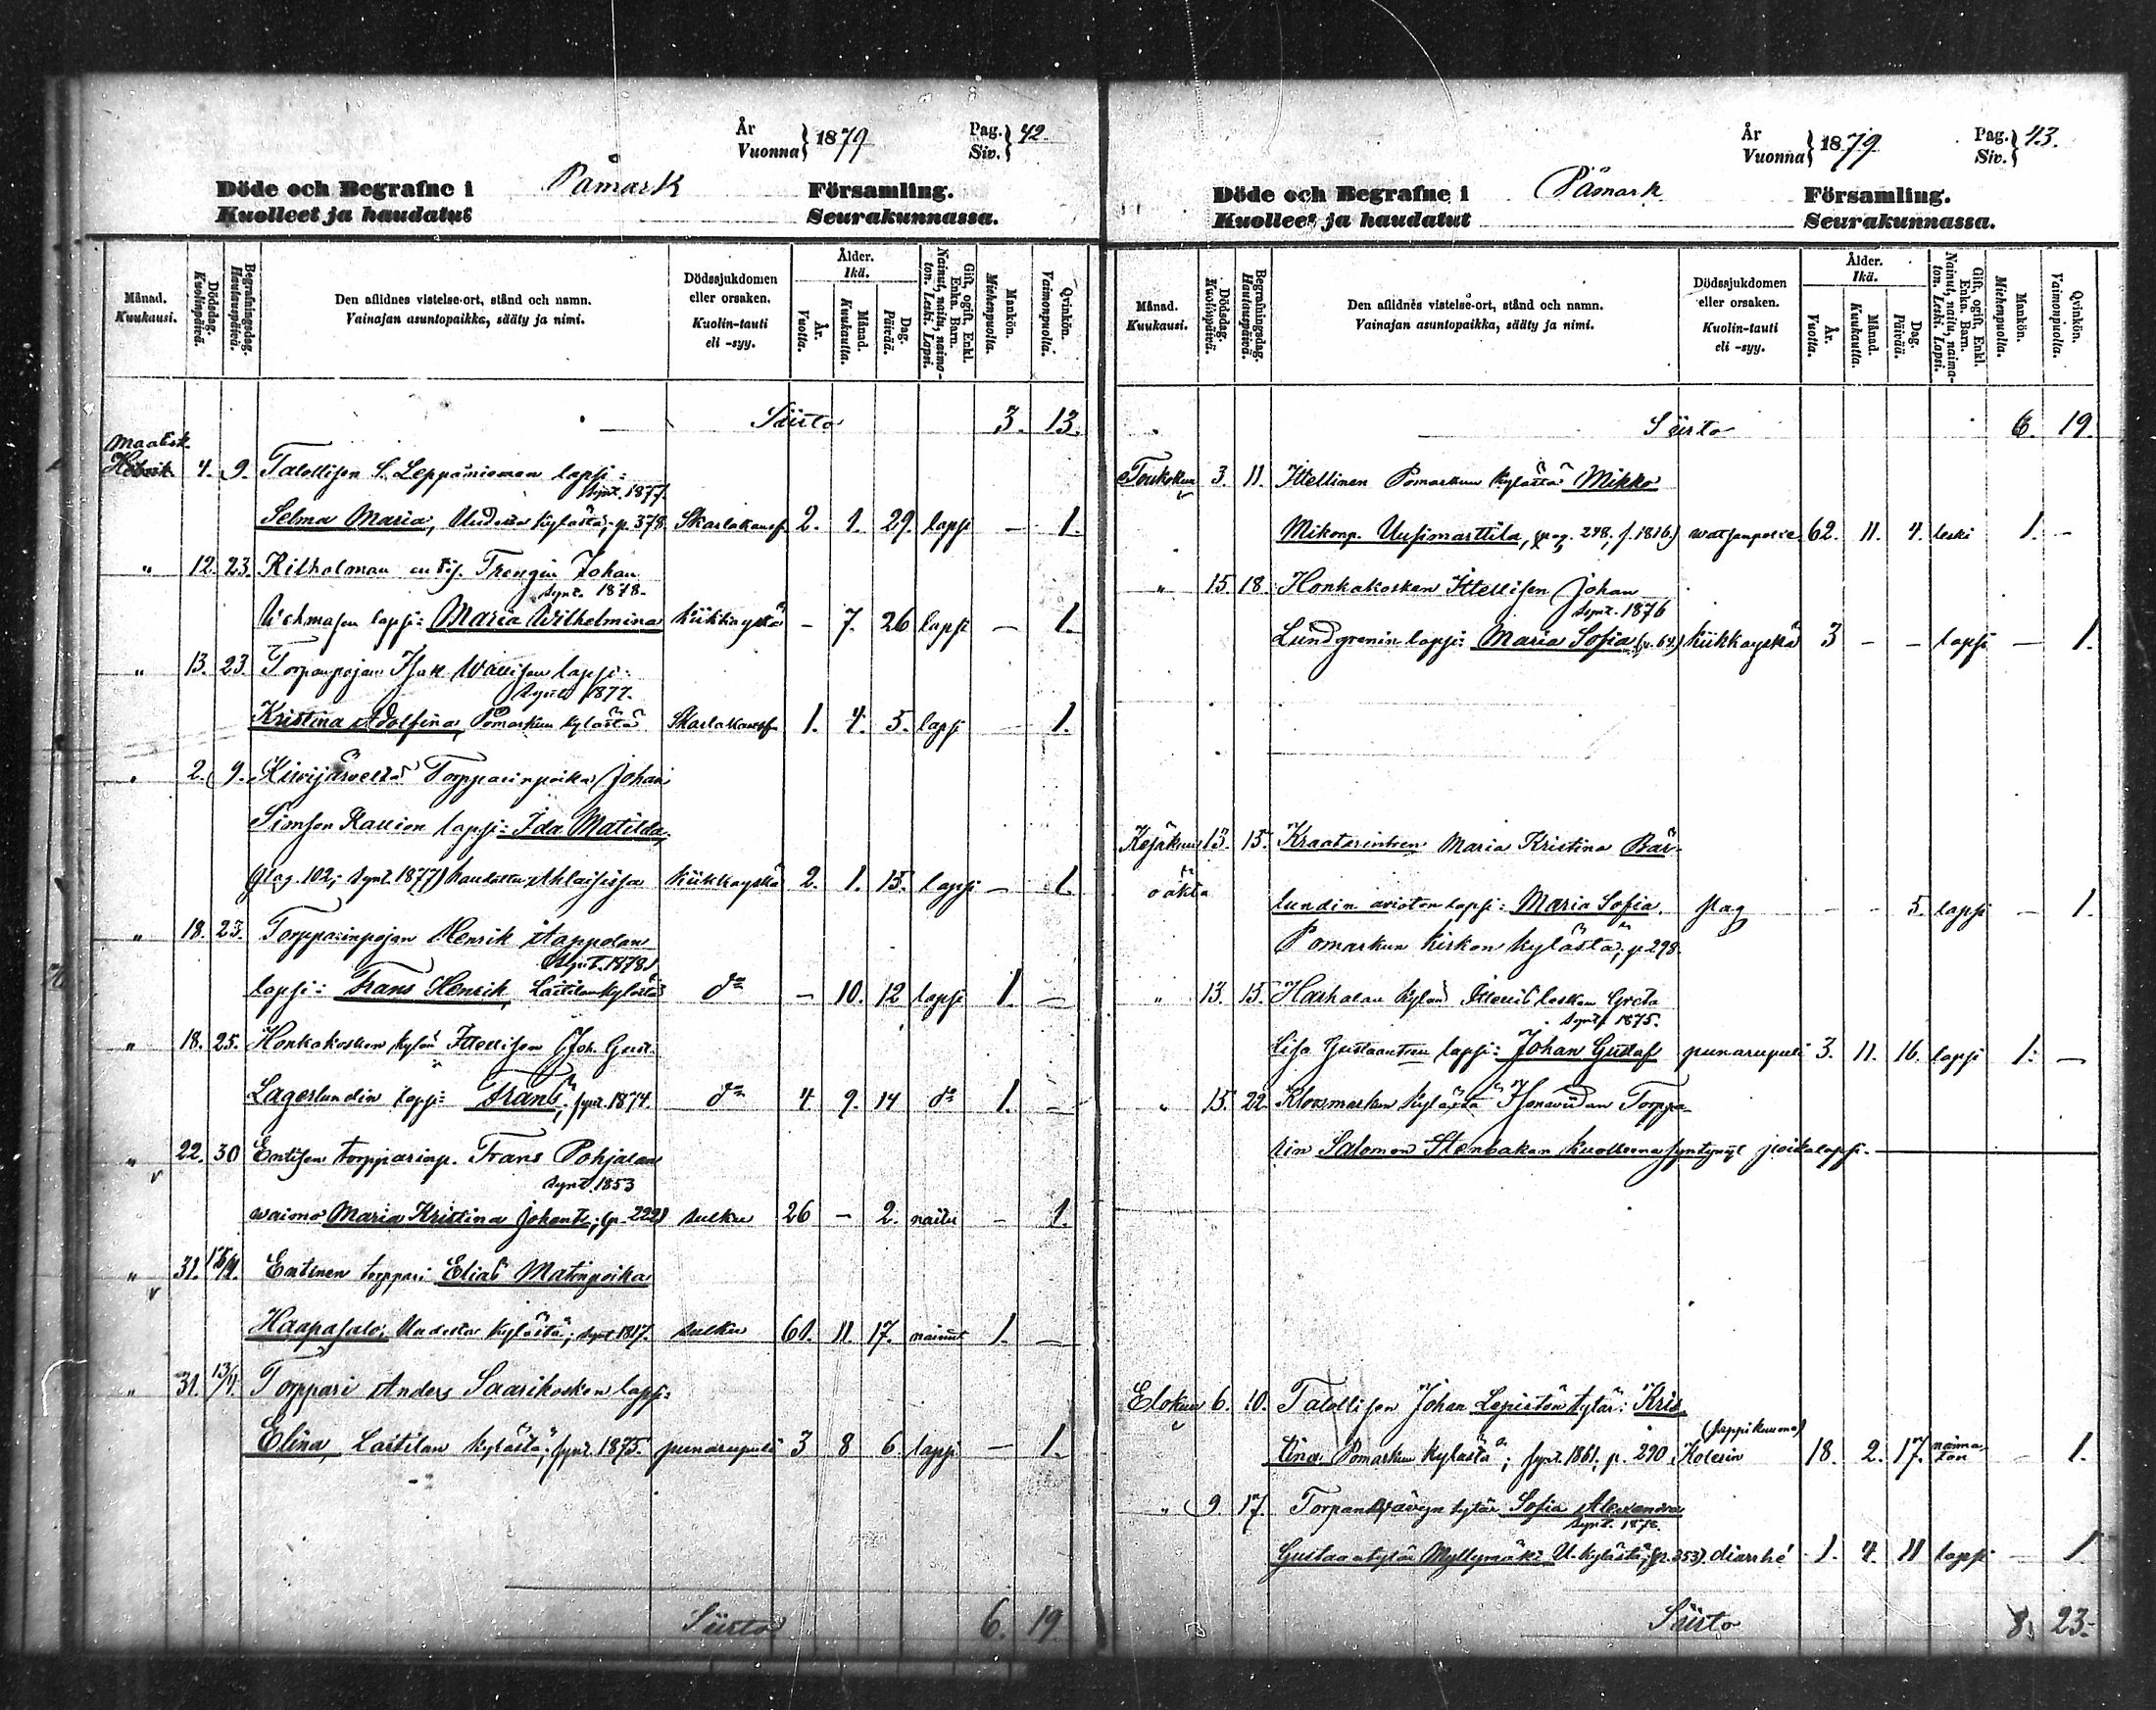 År
Vuonna } 1879 Pag.
Siv. } 42.
Döde och Begrafne i Påmark Församling.
Kuolleet ja haudatut Seurakunnassa.
Månad. Kuukausi. Dödsdag. Kuolinpäivä. Begrafningsdag. Hautauspäivä. Den aflidnes vistelse-ort, stånd och namn. Vainajan asuntopaikka, sääty ja nimi. Dödssjukdomen eller orsaken. Kuolin-tauti eli -syy. Ålder. Ikä. År. Vuotta. Månad. Kuukautta. Dag. Päivää. Gift, ogift, Enkl. Enka. Barn. Nainut, naitu, naimaton. Leski. Lapsi. Mankön. Miehenpuolta. Qvinkön. Vaimonpuolta.
Siirto 3. 13.
Maalisk.
4. 9. Talollisen S. Leppäniemen lapsi:
synt. 1877.
Selma Maria, Uudesta kylästä; p. 378. Skarlakansf. 2. 1. 29. lapsi — 1.
" 12. 23. Riiholman ent. is. Trengin Johan
synt. 1878.
lapsi: Maria Wilhelmina kiikkayskä — 7. 26 lapsi — 1.
" 13. 23. Torpanpojan Isak Wallisen lapsi:
synt. 1877.
Kristina Adolfina, Pomarkun kylästä Skarlakansf 1. 4. 5. lapsi — 1.
" 2. 9. Kiwijärveltä Torpparinpoika Johan
Simson Raition lapsi: Ida Matilda,
(pag. 102; synt. 1877) haudattu Ahlaisissa kiikkayskä 2. 1. 15. lapsi — 1.
" 18. 23. Torpparinpojan Henrik Aappolan
synt. 1878.
lapsi: Frans Henrik, Laitilan kylästä d:o — 10. 12 lapsi 1. —
" 18. 25. Honkakosken kylän Itsellisen Joh. Gust.
Lagerlundin laps: Frans, synt. 1874. d:o 4 9. 14 d:o 1. —
" 22. 30 Entisen torpparinp. Frans Pohjalan
synt. 1853
waimo Maria Kristina Johant.; (p. 222) sulku 26 — 2. naitu — 1.
" 31. Entinen torppari Elias Matinpoika
Haapasalo, Uudesta kylästä; synt 1817. sulku 61. 11. 17. nainut 1. —
" 31. 13/4. Torppari Anders Saarikosken lapsi:
Elina, Laitilan kylästä; synt. 1875. punarupuli 3 8 6. lapsi — 1.
Siirto 6. 19
År
Vuonna } 1879 Pag.
Siv. } 43.
Döde och Begrafne i Påmark Församling.
Kuolleet ja haudatut Seurakunnassa.
Månad. Kuukausi. Dödsdag. Kuolinpäivä. Begrafningsdag. Hautauspäivä. Den aflidnes vistelse-ort, stånd och namn. Vainajan asuntopaikka, sääty ja nimi. Dödssjukdomen eller orsaken. Kuolin-tauti eli -syy. Ålder. Ikä. År. Vuotta. Månad. Kuukautta. Dag. Päivää. Gift, ogift, Enkl. Enka. Barn. Nainut, naitu, naimaton. Leski. Lapsi. Mankön. Miehenpuolta. Qvinkön. Vaimonpuolta.
Siirto 6. 19.
Toukokuu 3. 11. Itsellinen Pomarkun kylästä Mikko
Mikonp. Uusimarttila, (pag. 248, s. 1816.) 62. 11. 4. leski 1. —
" 15. 18. Honkakosken Itsellisen Johan
synt. 1876
Lundgrenin lapsi: Maria Sofia (p. 64.) kiikkayskä 3 — — lapsi — 1.
Kesäkuu 13. 15. Kraatarintren Maria Kristina Bär-
oäkta lundin aviotton lapsi: Maria Sofia, slag — — 5. lapsi — 1.
Pomarkun kirkon kylästä; p 298.
" 13. 15. Harhalan kylän Itsellis lesken Greta
synt. 1875.
Lisa Gustaantren lapsi: Johan Gustaf punarupuli 3. 11. 16. lapsi 1. —
" 15. 22 Kloosmarkun kylästä Torppa-
rin Salomon Stenbakan kuolleena syntynyt poikalapsi. —
Elokuu 6. 10. Talollisen Johan Lepistön tytär: Kris-
tina Pomarkun kylästä; synt. 1861, p. 290. Kolerin 18. 2. 17. naima-
ton — 1.
" 9. 17. tytär Sofia Alexandra
Gustaantytär Myllymäki U. kylästä; (p. 353). diarrhé 1. 4 11 lapsi — 1.
Siirto 8. 23.